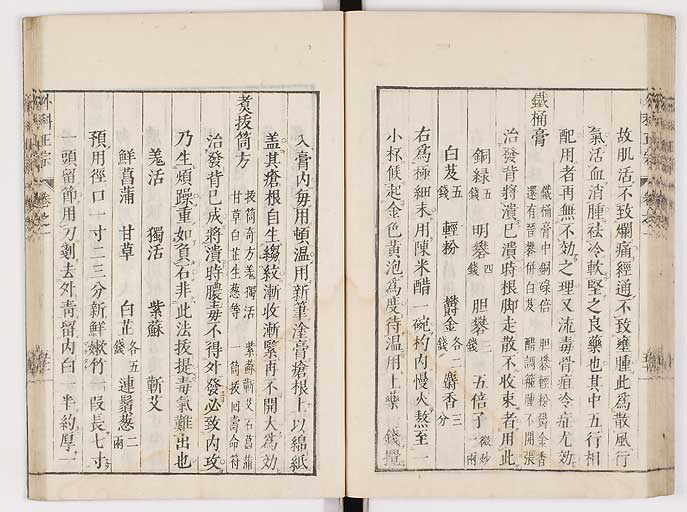 故肌活不致爛痛經通不致壅腫此爲散風行
氣活血消腫祛冷軟堅之良藥也其中五行相
配用者再無不効之理又流毒骨疽冷症尤効
鐵桶膏
鐵桶膏中銅碌倍 胆礬輕粉鬱金香
還有胥礬併白芨 醋調箍腫不開張
治發背將潰已潰時根脚走散不收束者用此
銅緑五錢 明礬四錢 胆礬三錢 五倍子微炒一兩
白芨五錢 輕粉 鬱金各二錢 麝香三分
右爲極細末用陳米醋一碗杓内慢火熬至一
小杯候起金色黃泡爲度待温用上藥 錢攪
入膏内每用頓温用新筆塗膏瘡根上以綿紙
蓋其瘡根自生縐紋漸收漸緊再不開大爲効
煑拔筒方
拔筒奇方羗獨活 紫蘇蘄艾石菖蒲
甘草白芷生葱等 一筒拔回壽命符
治發背已成將潰時膿毒不得外發必致内攻
乃生煩躁重如負石非此法拔提毒氣難出也
羗活 獨活 紫蘇 蘄艾
鮮菖蒲 甘草 白芷各五錢 連鬚葱二兩
預用徑口一寸二三分新鮮嫩竹一段長七寸
一頭留節用刀剗去外青留内白一半約厚一
外科正宗 卷之